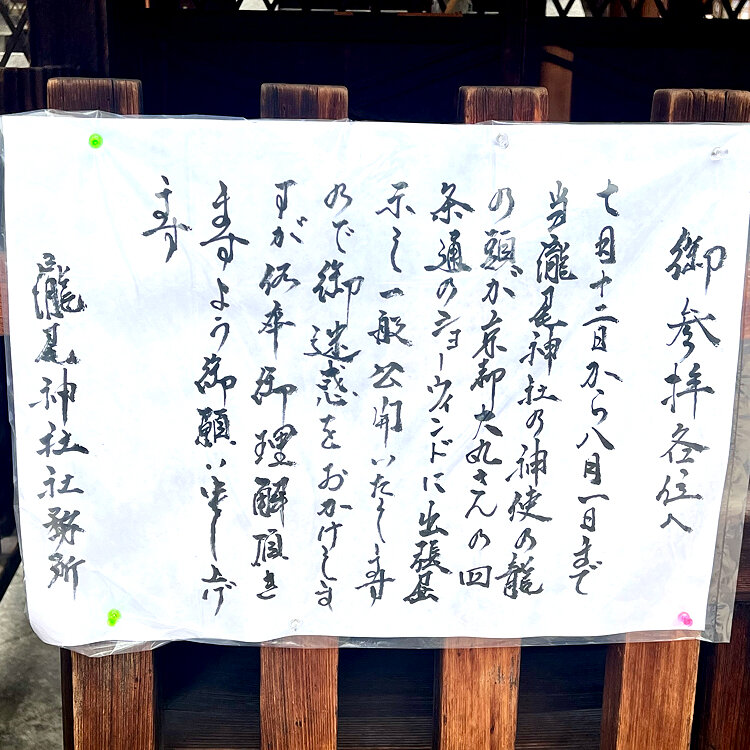 御参拝各位へ
七月十二日から八月一日まで
当瀧尾神社の神使の龍
の頭が京都大丸さんの四
条通のショーウィンドに出張展
示し一般公開いたします
ので御迷惑をおかけしま
すが何卒御理解頂き
ますよう御願い申し上げ
ます
瀧尾神社社務所